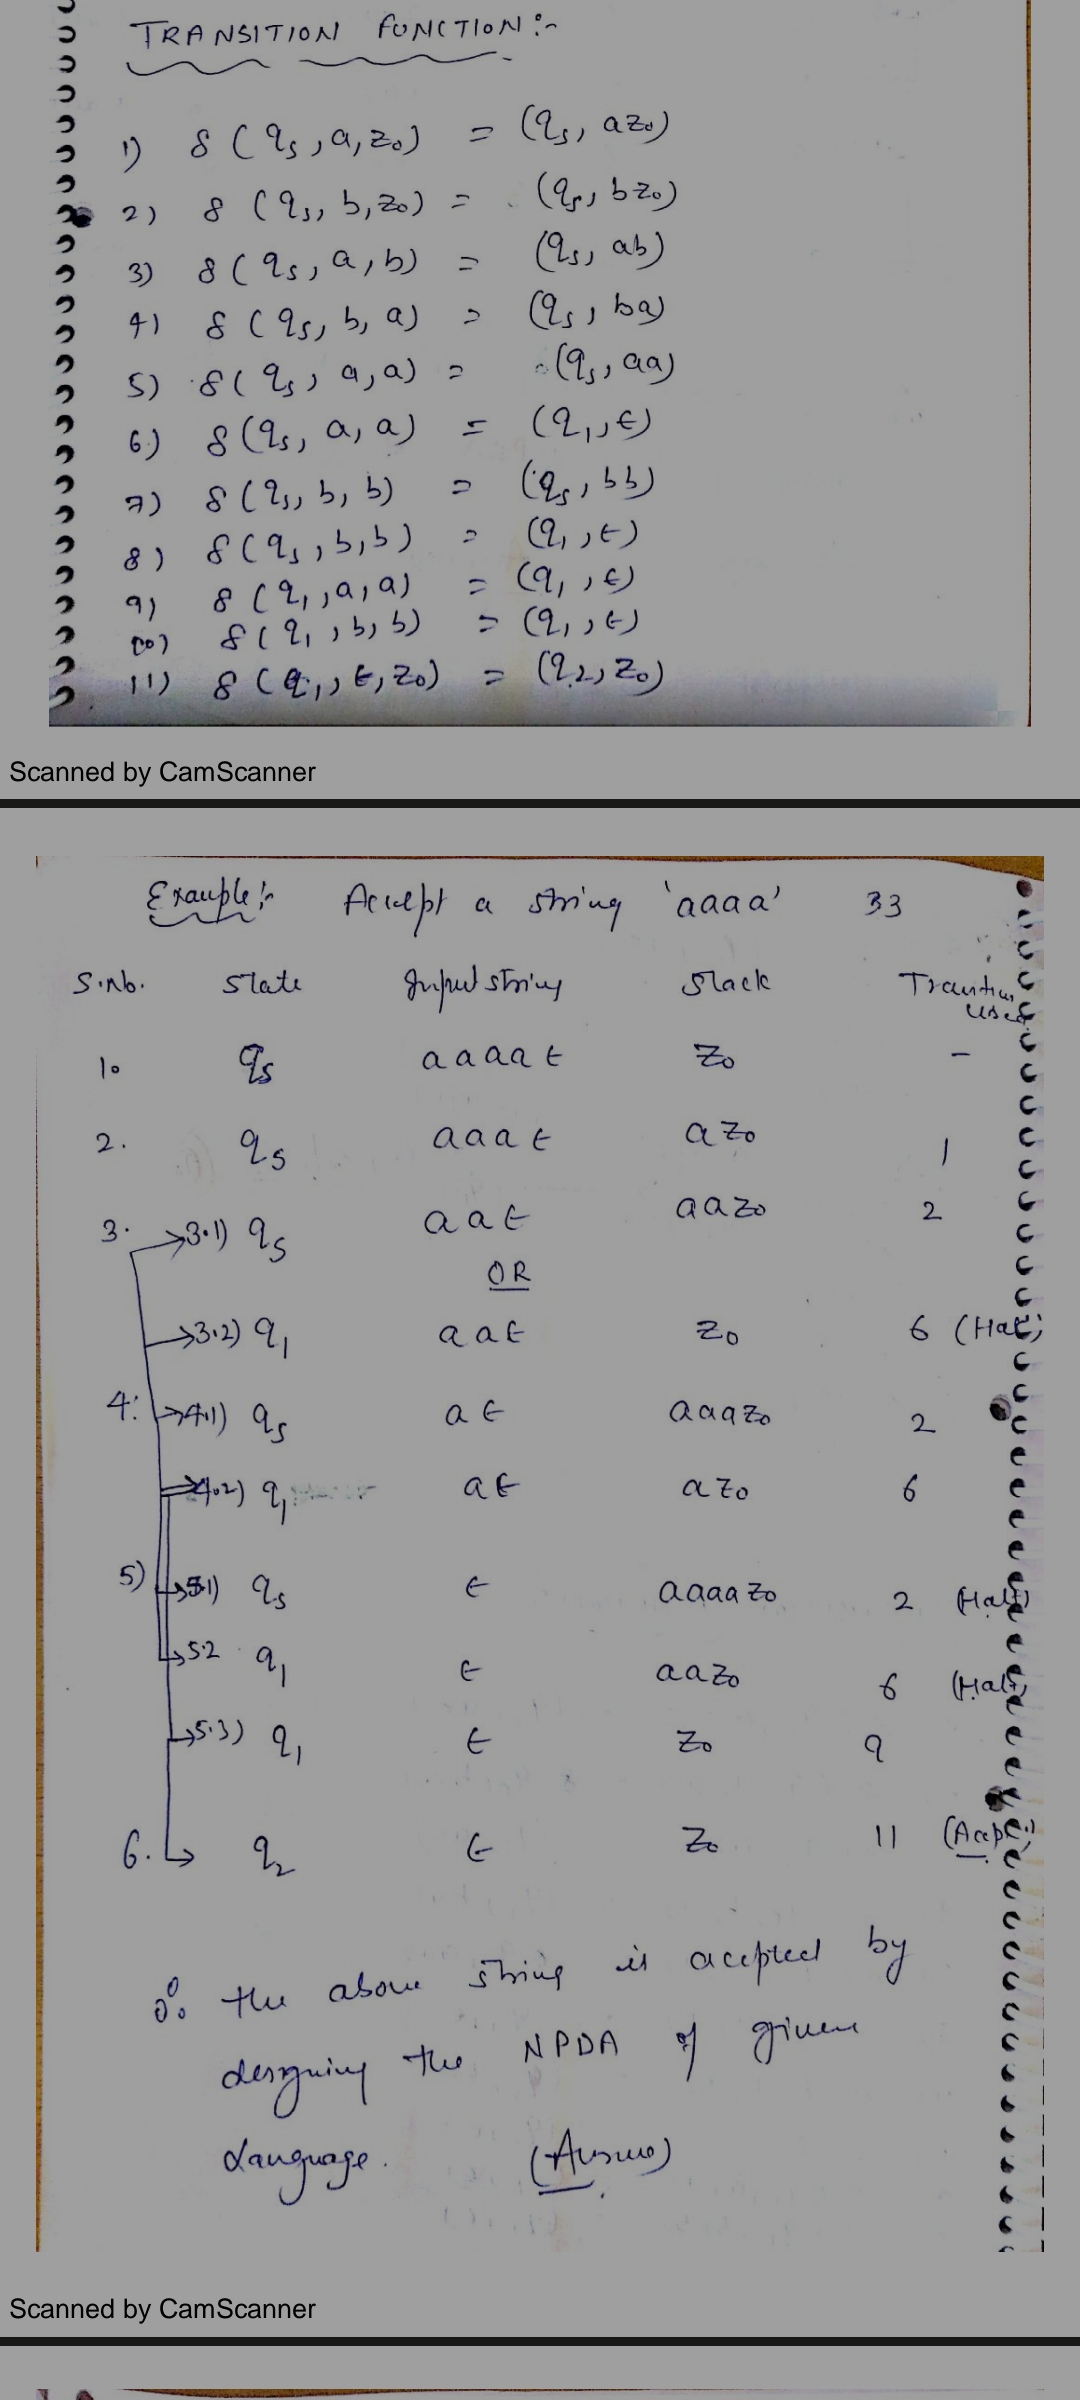 TRANSITION FUNCTION :-
1) δ (qs, a, z0) = (qs, az0)
2) δ (qs, b, z0) = (qs, bz0)
3) δ (qs, a, b) = (qs, ab)
4) δ (qs, b, a) = (qs, ba)
5) δ (qs, a, a) = (qs, aa)
6) δ (qs, a, a) = (q1, ε)
7) δ (qs, b, b) = (qs, bb)
8) δ (qs, b, b) = (q1, ε)
9) δ (q1, a, a) = (q1, ε)
10) δ (q1, b, b) = (q1, ε)
11) δ (q1, ε, z0) = (q2, z0)
Scanned by CamScanner
Example :- Accept a string 'aaaa' 33
S.No. State Input string Stack used
1. qs aaaaε z0 -
2. qs aaaε az0 1
3. 3.1) qs aaε aaz0 2
OR
3.2) q1 aaε z0 6 (Halt)
4. 4.1) qs aε aaaz0 2
4.2) q1 aε az0 6
5) 5.1) qs ε aaaaz0 2 (Halt)
5.2 q1 ε aaz0 6 (Halt)
5.3) q1 ε z0 9
6. q2 ε z0 11
∴ the above string is accepted by
designing the NPDA of given
Language. (Answer)
Scanned by CamScanner